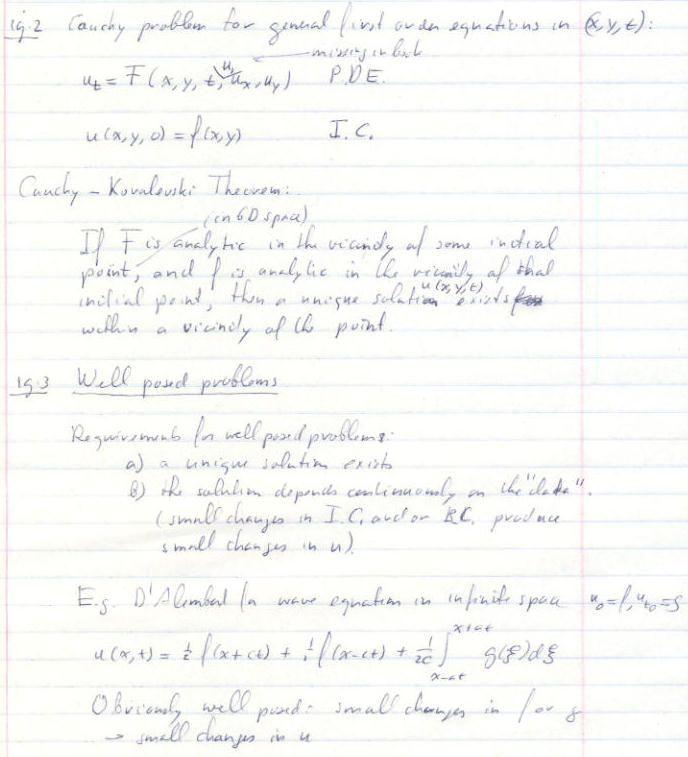 19.2 Cauchy problem for general first order equations in (x,y,t):
missing in book
u_t = F(x, y, t, u, u_x, u_y) P.D.E.
u(x,y,0) = f(x,y) I.C.
Cauchy - Kovalevski Theorem:
(in 6D space)
If F is analytic in the vicinity of some initial
point, and f is analytic in the vicinity of that
initial point, then a unique solution u(x,y,t) exists
within a vicinity of the point.
19.3 Well posed problems
Requirements for well posed problems:
a) a unique solution exists
b) the solution depends continuously on the "data".
(small changes in I.C. and or B.C. produce
small changes in u)
E.g. D'Alembert for wave equation in infinite space u_0=f, u_{t0}=g
u(x,t) = ½ f(x+ct) + ½ f(x-ct) + 1/2c ∫_{x-ct}^{x+ct} g(ξ)dξ
Obviously well posed: small changes in f or g
→ small changes in u